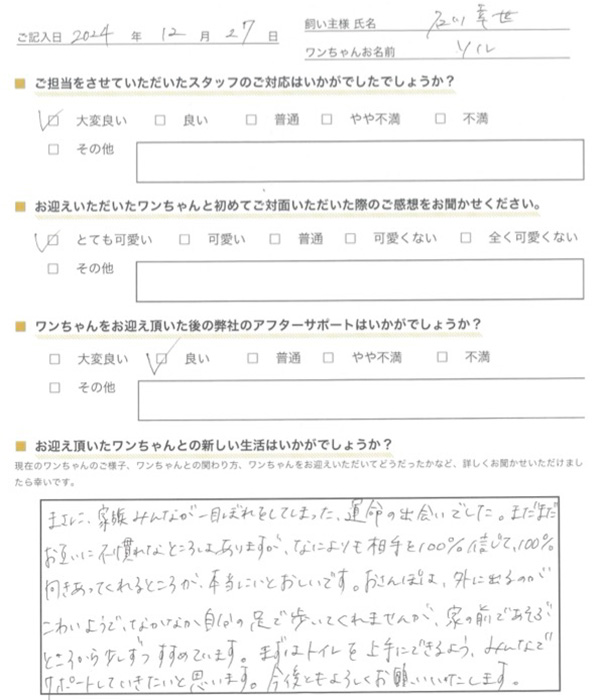 ご記入日 2024 年 12 月 27 日
飼い主様 氏名 石川 幸世
ワンちゃんお名前 ソル
■ ご担当をさせていただいたスタッフのご対応はいかがでしたでしょうか?
☑ 大変良い □ 良い □ 普通 □ やや不満 □ 不満
□ その他
■ お迎えいただいたワンちゃんと初めてご対面いただいた際のご感想をお聞かせください。
☑ とても可愛い □ 可愛い □ 普通 □ 可愛くない □ 全く可愛くない
□ その他
■ ワンちゃんをお迎え頂いた後の弊社のアフターサポートはいかがでしょうか?
□ 大変良い ☑ 良い □ 普通 □ やや不満 □ 不満
□ その他
■ お迎え頂いたワンちゃんとの新しい生活はいかがでしょうか?
現在のワンちゃんのご様子、ワンちゃんとの関わり方、ワンちゃんをお迎えいただいてどうだったかなど、詳しくお聞かせいただけまし
たら幸いです。
まさに、家族みんなが一目ぼれをしてしまった、運命の出会いでした。まだまだ
お互いに不慣れなところはありますが、なによりも相手を100%信じて、100%
向きあってくれるところが、本当にいとおしいです。おさんぽは、外に出るのが
こわいようで、なかなか自分の足で歩いてくれませんが、家の前であそぶ
ところから少しずつすすめています。まずはトイレを上手にできるよう、みんなで
サポートしていきたいと思います。今後ともよろしくお願いいたします。